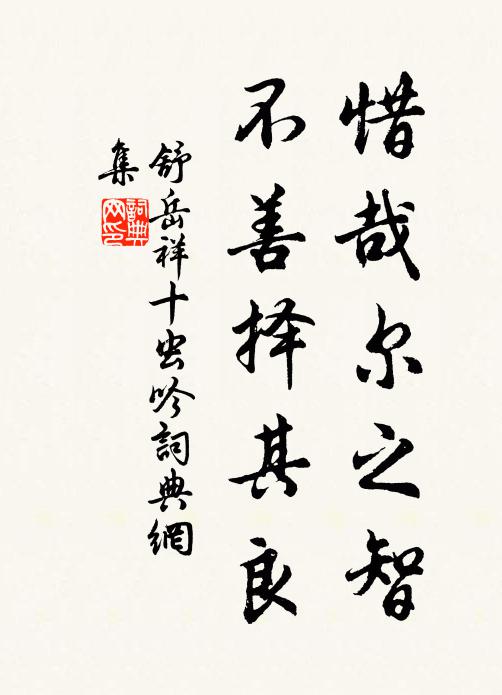 惜哉尔之智
不善择其良
舒岳祥十虫吟詞典網
集
詞典网印